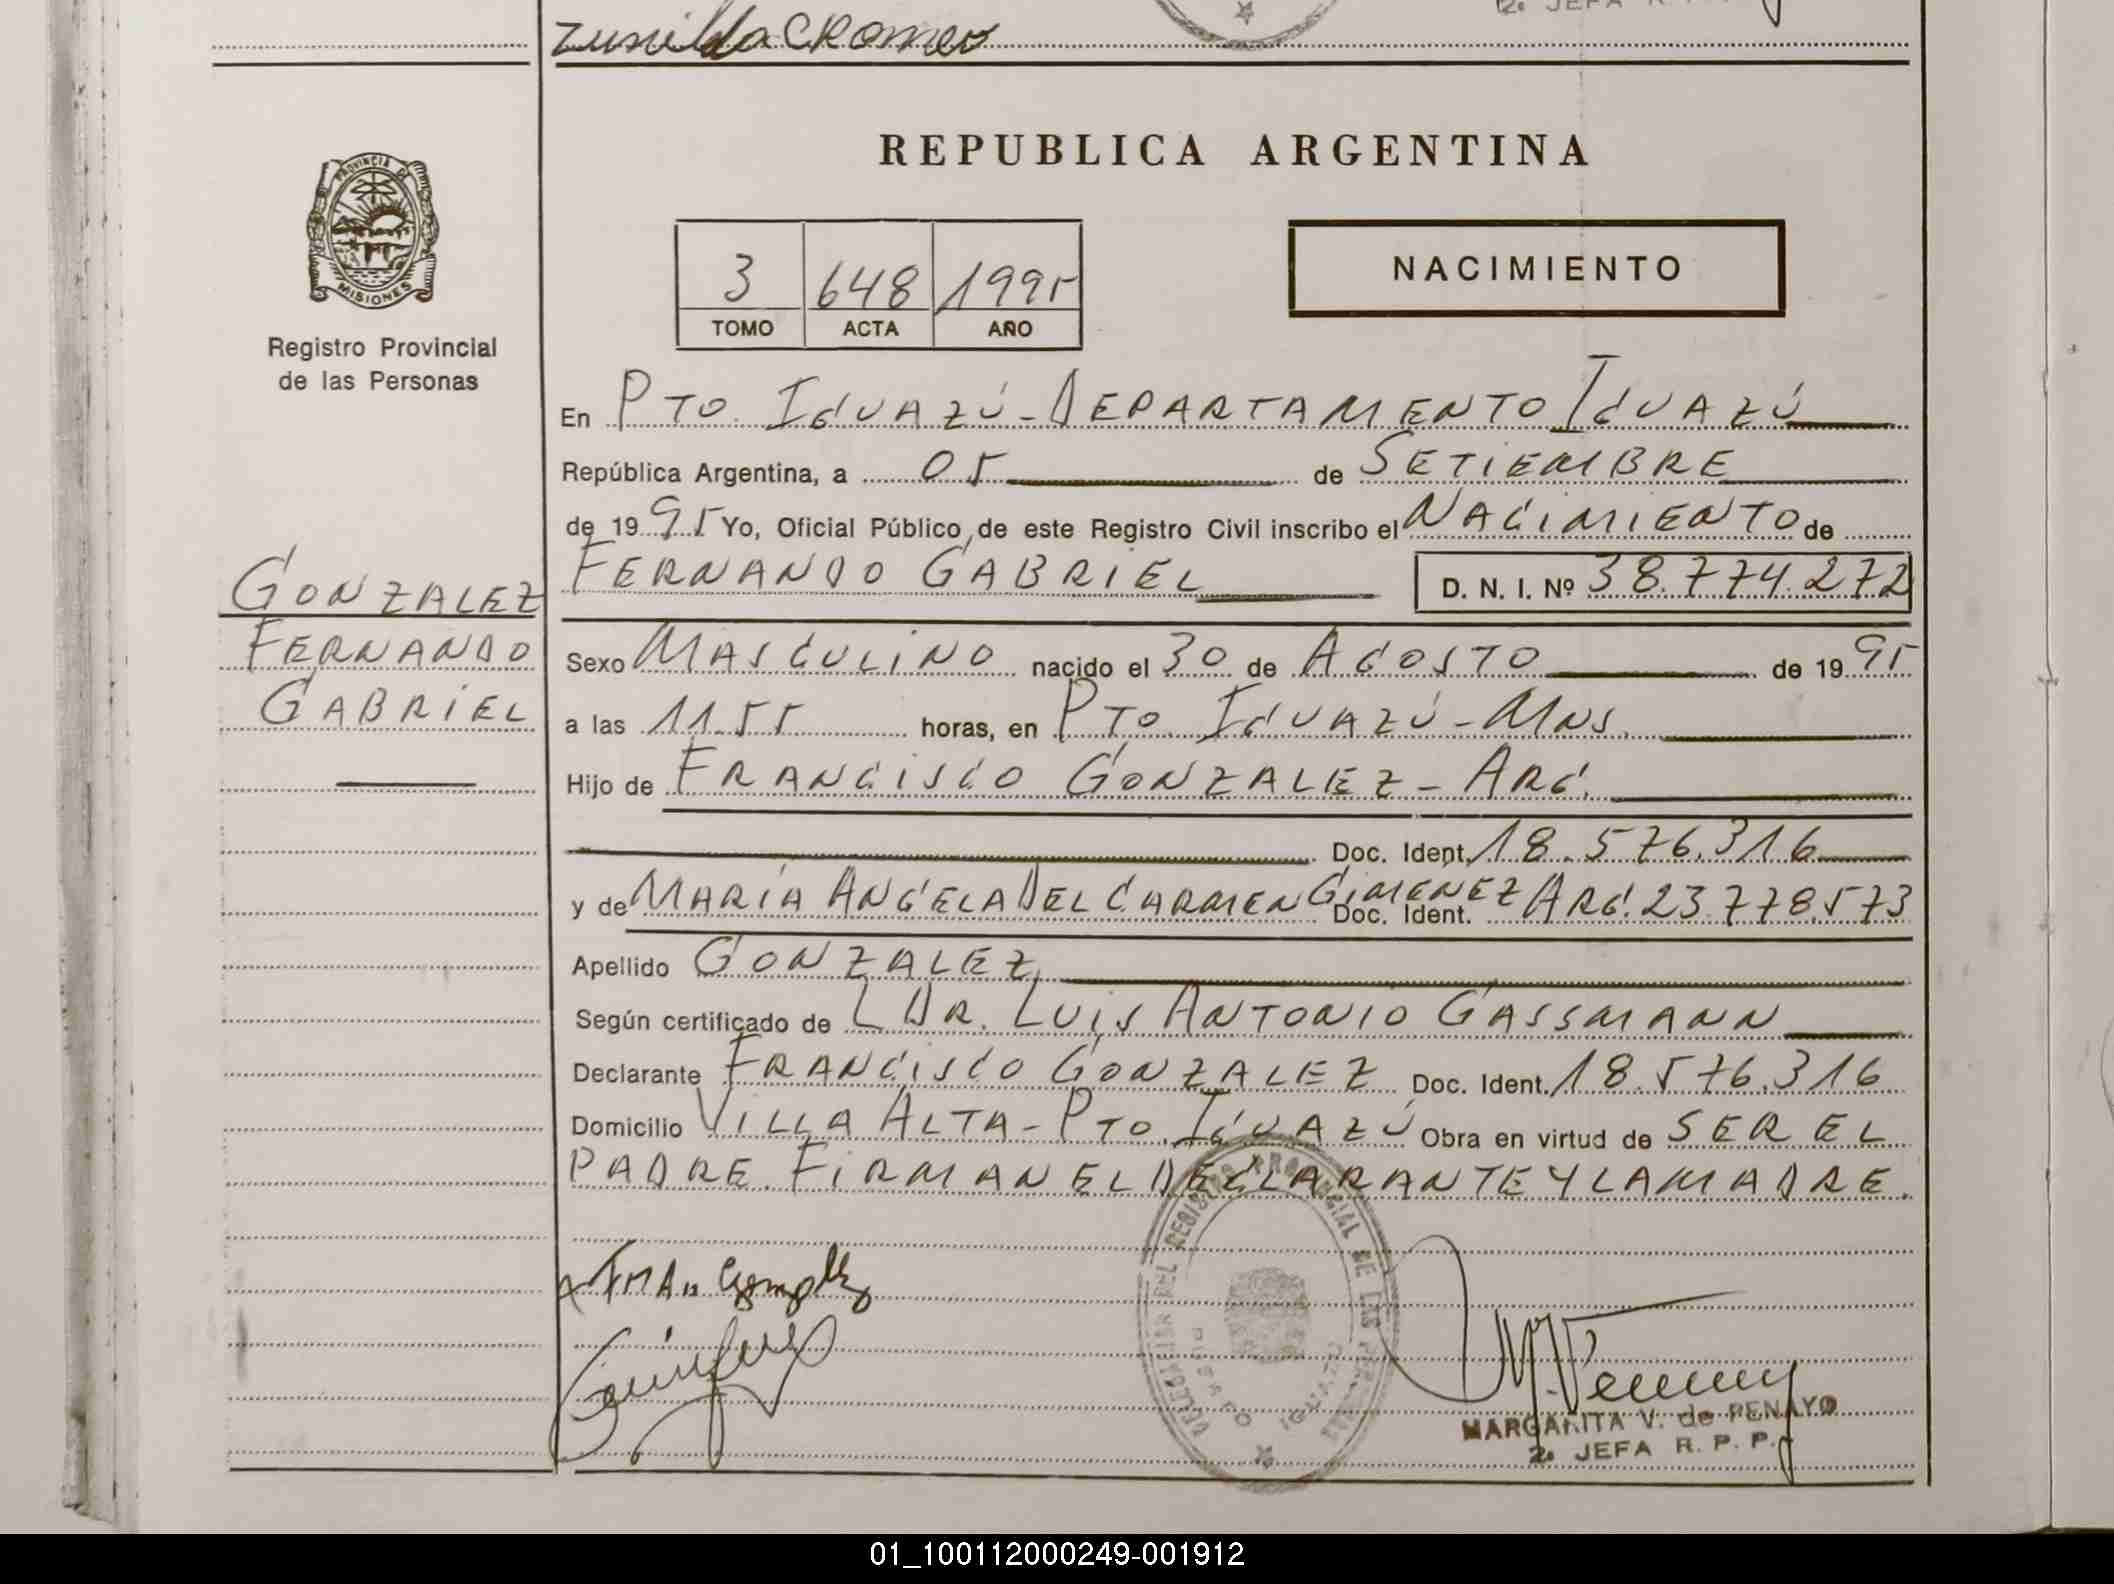 Zunilda C Romero
2a JEFA R.
REPUBLICA ARGENTINA
PROVINCIA DE
MISIONES
Registro Provincial
de las Personas
3 648 1995
TOMO ACTA AÑO
NACIMIENTO
En PTO. IGUAZÚ - DEPARTAMENTO IGUAZÚ
República Argentina, a 05 de SETIEMBRE
de 1995 Yo, Oficial Público de este Registro Civil inscribo el NACIMIENTO de
GONZALEZ
FERNANDO
GABRIEL
FERNANDO GABRIEL D. N. I. Nº 38.774.272
Sexo MASCULINO nacido el 30 de AGOSTO de 1995
a las 11.55 horas, en PTO. IGUAZÚ - MNS.
Hijo de FRANCISCO GONZALEZ - ARG.
Doc. Ident. 18.576.316
y de MARÍA ANGELA DEL CARMEN GIMENEZ Doc. Ident. ARG. 23.778.573
Apellido GONZALEZ
Según certificado de L DR. LUIS ANTONIO GASSMANN
Declarante FRANCISCO GONZALEZ Doc. Ident. 18.576.316
Domicilio VILLA ALTA - PTO. IGUAZÚ Obra en virtud de SER EL
PADRE. FIRMAN EL DECLARANTE Y LA MADRE.
DEL REGISTRO PROVINCIAL DE LAS PERSONAS
IGUAZU
MARGARITA V. de PENAYO
2a JEFA R. P. P.
01_100112000249-001912